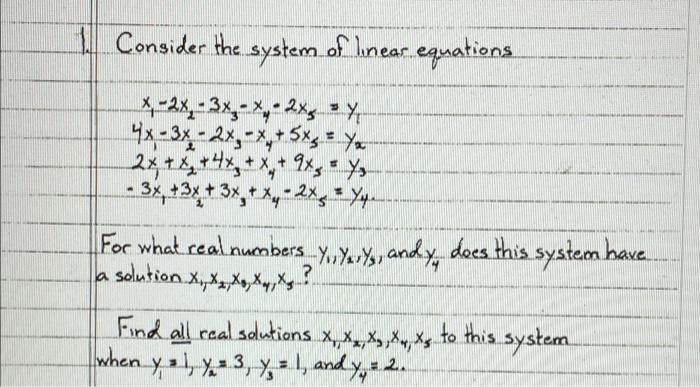 1. Consider the system of linear equations
x₁-2x₂-3x₃-x₄-2x₅ = y₁
4x₁-3x₂-2x₃-x₄+5x₅ = y₂
2x₁+x₂+4x₃+x₄+9x₅ = y₃
-3x₁+3x₂+3x₃+x₄-2x₅ = y₄.
For what real numbers y₁,y₂,y₃, and y₄ does this system have
a solution x₁,x₂,x₃,x₄,x₅?
Find all real solutions x₁,x₂,x₃,x₄,x₅ to this system
when y₁=1, y₂=3, y₃=1, and y₄=2.